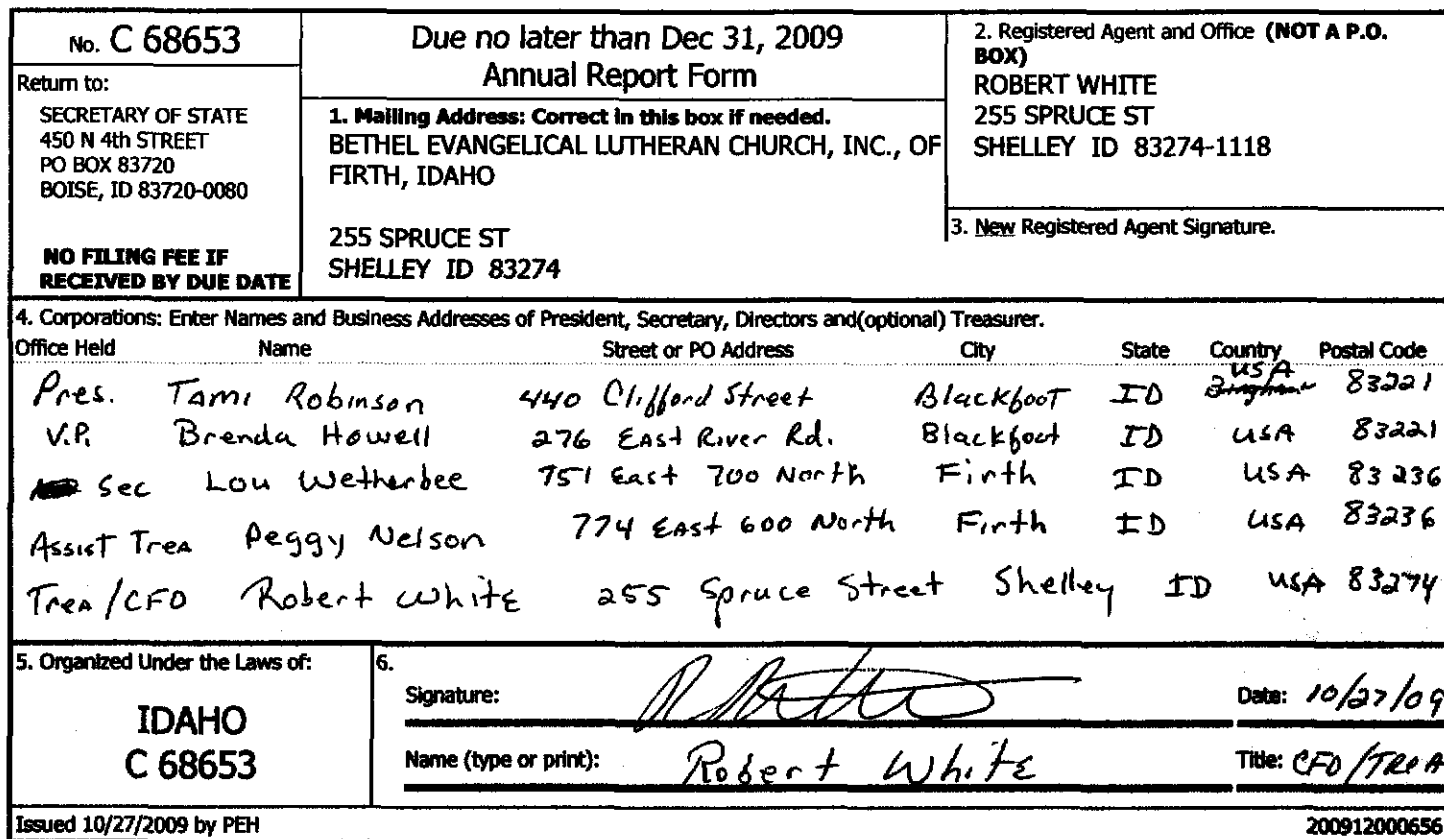 No. C 68653
Return to:
SECRETARY OF STATE
450 N 4th STREET
PO BOX 83720
BOISE, ID 83720-0080
NO FILING FEE IF
RECEIVED BY DUE DATE
Due no later than Dec 31, 2009
Annual Report Form
1. Mailing Address: Correct in this box if needed.
BETHEL EVANGELICAL LUTHERAN CHURCH, INC., OF
FIRTH, IDAHO
255 SPRUCE ST
SHELLEY ID 83274
2. Registered Agent and Office (NOT A P.O.
BOX)
ROBERT WHITE
255 SPRUCE ST
SHELLEY ID 83274-1118
3. New Registered Agent Signature.
4. Corporations: Enter Names and Business Addresses of President, Secretary, Directors and(optional) Treasurer.
Office Held Name Street or PO Address City State Country Postal Code
Pres. Tami Robinson 440 Clifford Street Blackfoot ID USA 83221
V.P. Brenda Howell 276 East River Rd. Blackfoot ID USA 83221
Sec Lou Wetherbee 751 East 700 North Firth ID USA 83236
Assist Trea Peggy Nelson 774 East 600 North Firth ID USA 83236
Trea/CFO Robert White 255 Spruce Street Shelley ID USA 83274
5. Organized Under the Laws of:
IDAHO
C 68653
6.
Signature: Date: 10/27/09
Name (type or print): Robert White Title: CFO/TREA
Issued 10/27/2009 by PEH 200912000656